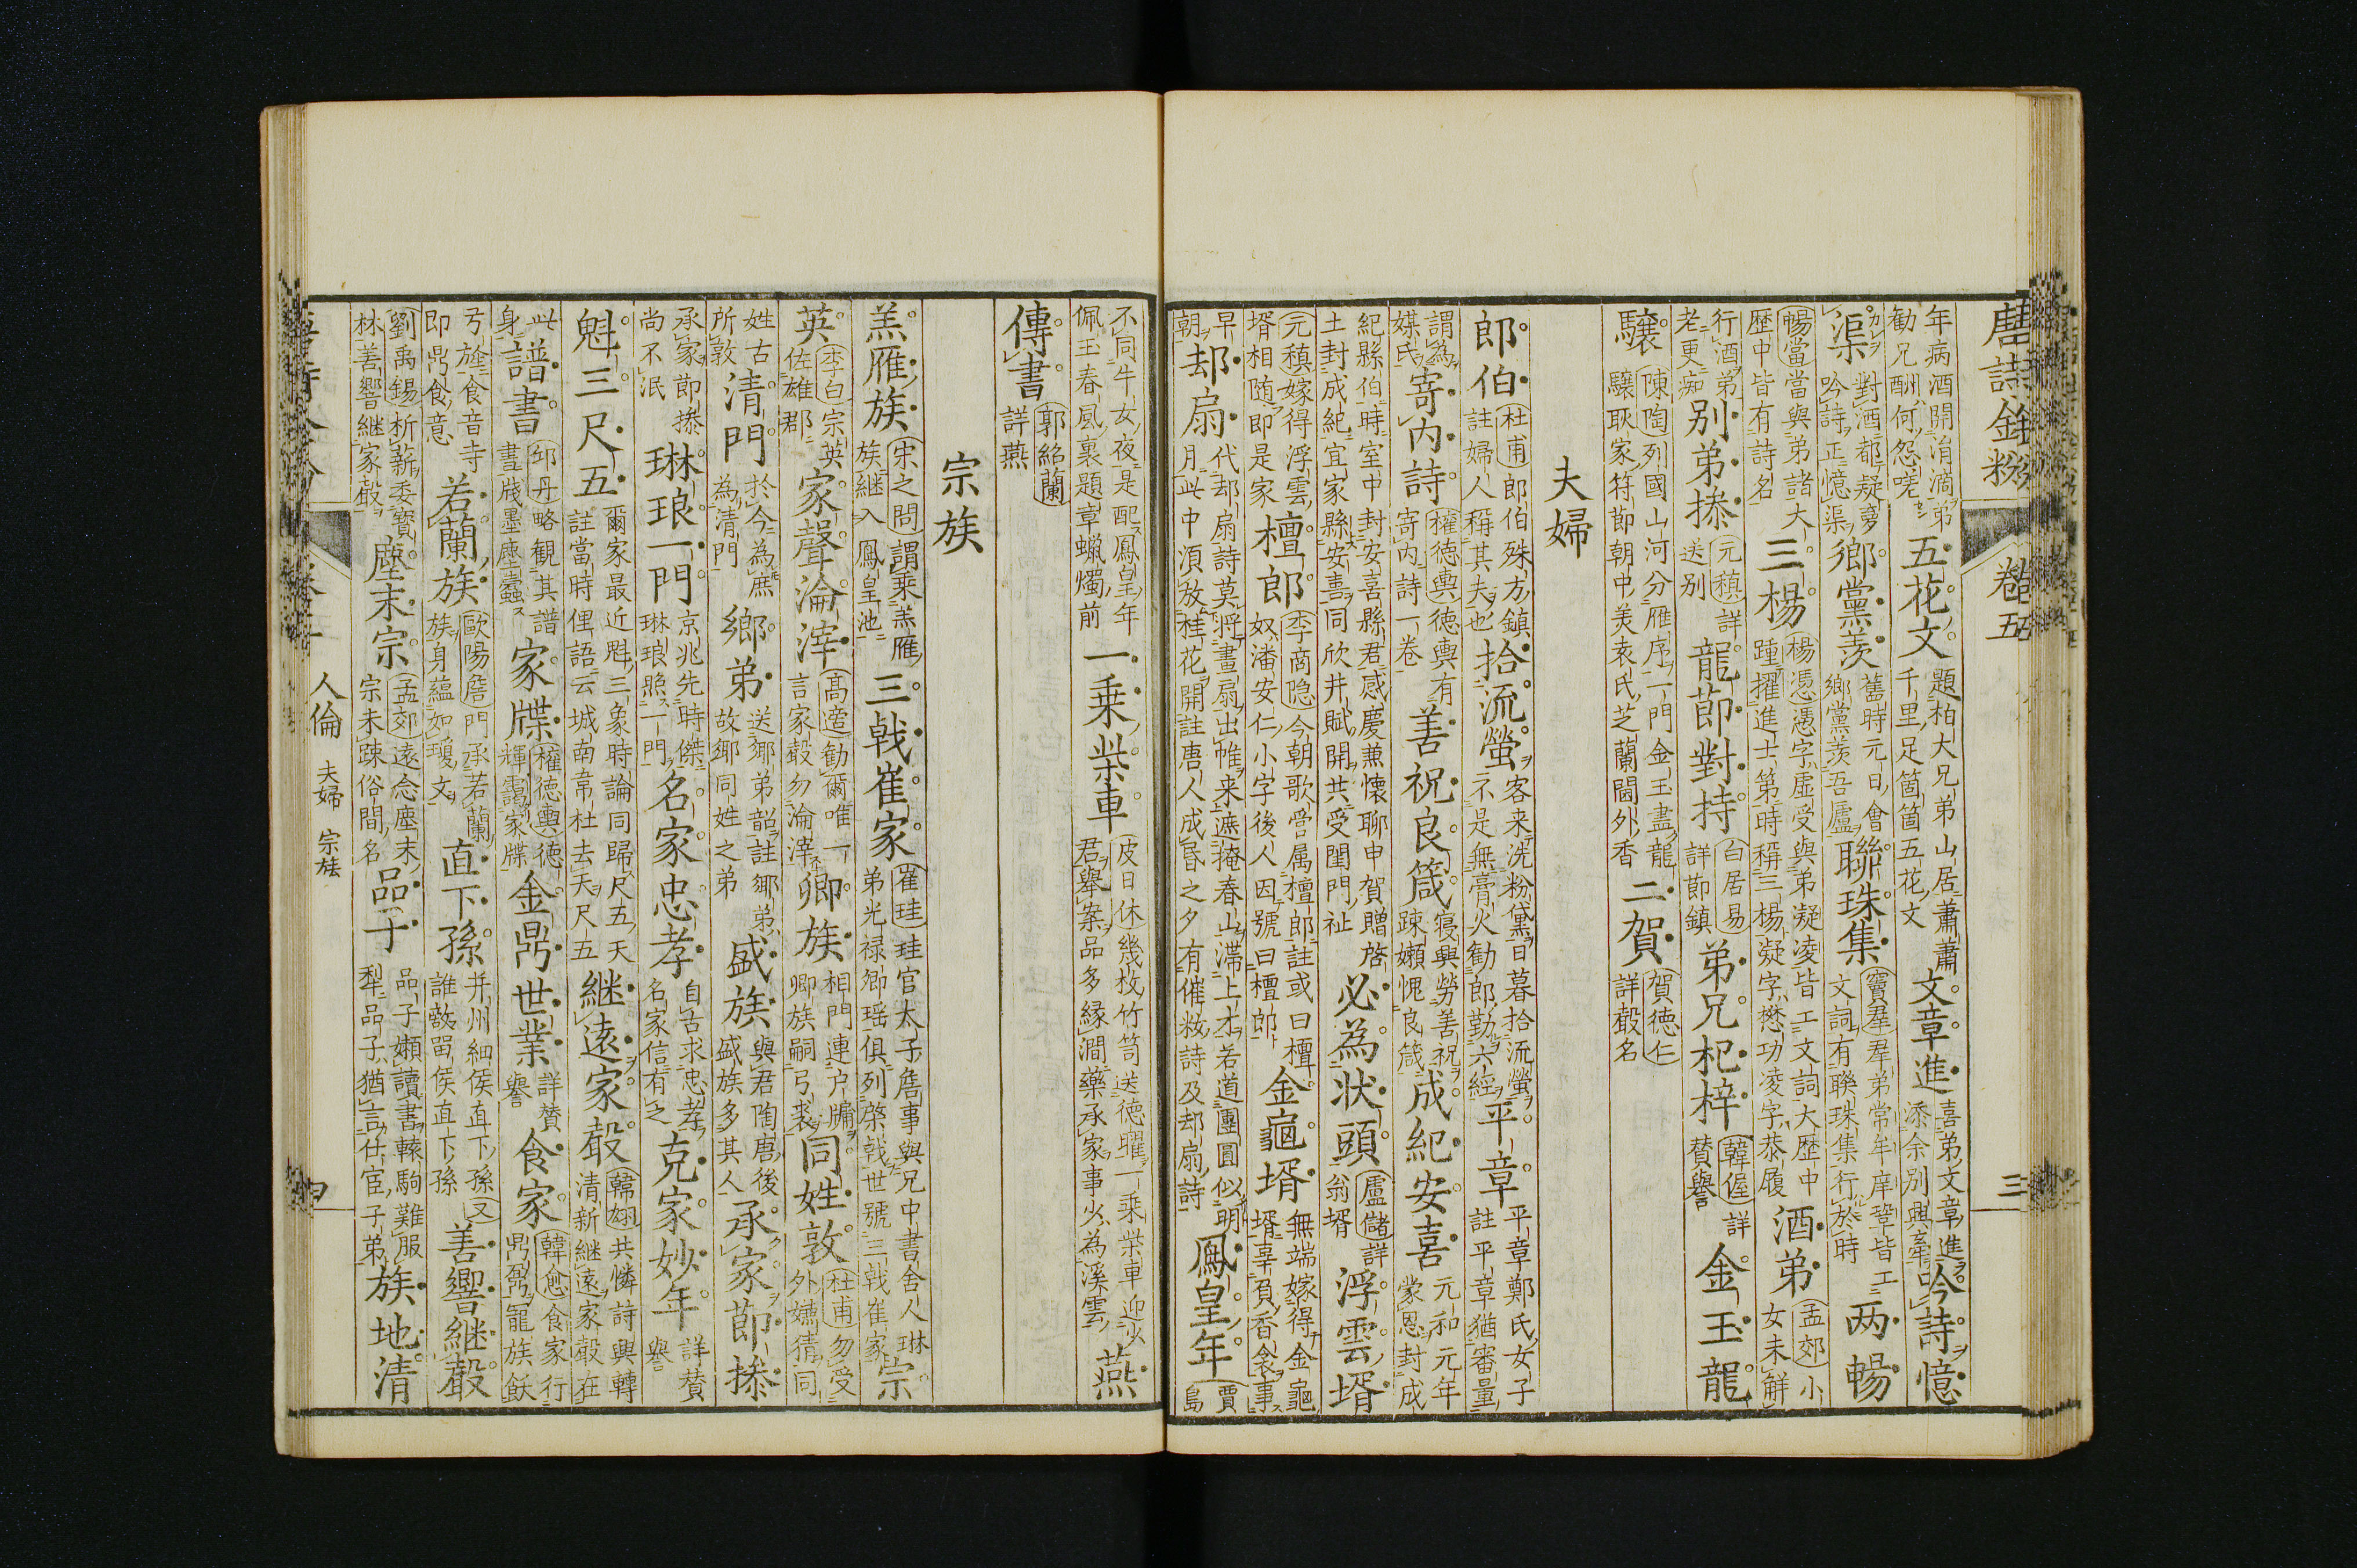 唐詩金粉 卷五 三
年病酒開涓滴弟勸兄酬何怨嗟 五花文 題柏大兄弟山居蕭蕭千里足箇箇五花文 文章進 喜弟文章進添余別興牽 吟詩憶
渠 對酒都疑夢吟詩正憶渠 鄉黨羨 舊時元日會鄉黨羨吾廬 聯珠集 竇群群弟常牟庠鞏皆工文詞有聯珠集行於時 两暢
暢當當與弟諸大歷中皆有詩名 三楊 楊憑憑字虛受與弟凝凌皆工文詞大歷中踵擢進士第時稱三楊凝字懋功凌字恭履 酒弟 孟郊小女未解
行酒弟老更痴 別弟摻 元稹詳送別 龍節對持 白居易詳節鎮 弟兄杞梓 韓偓詳贊譽 金玉龍
驤 陳陶列國山河分雁序一門金玉盡龍驤耿家符節朝中美袁氏芝蘭閫外香 二賀 賀德仁詳聲名
夫婦
郎伯 杜甫郎伯殊方鎮註婦人稱其夫也 拾流螢 客来洗粉黛日暮拾流螢不是無膏火勸郎勤六經 平章 平章鄭氏女子註平章猶審量
謂為媒氏 寄內詩 權德輿德輿有寄內詩一卷 善祝良箴 寢興勞善祝踈嬾愧良箴 成紀安喜 元和元年蒙恩封成
紀縣伯時室中封安喜縣君感慶兼懷聊申賀贈啓土封成紀宜家縣安喜同欣井賦開共受閨門祉 必為狀頭 盧儲詳翁壻 浮雲壻
元稹嫁得浮雲壻相随即是家 檀郎 李商隐今朝歌管属檀郎註或曰檀奴潘安仁小字後人因號曰檀郎 金龜壻 無端嫁得金龜壻辜負香衾事
早朝 却扇 代却扇詩莫將畫扇出帷来遮掩春山滯上才若道團圓似明月此中須放桂花開註唐人成昏之夕有催粧詩及却扇詩 鳳皇年 賈島
不同牛女夜是配鳳皇年佩玉春風裏題章蠟燭前 一乗柴車 皮日休幾枚竹笥送德曜一乗柴車迎少君舉案品多緣澗藥承家事少為溪雲 燕
傳書 郭紹蘭詳燕
宗族
羔雁族 宋之問謂乘羔雁族继入鳳皇池 三戟崔家 崔珪珪官太子詹事與兄中書舍人琳弟光禄卿瑶俱列棨戟世號三戟崔家 宗
英 李白宗英佐雄郡 家聲淪滓 高適勸爾唯一言家聲勿淪滓 卿族 相門連户牖卿族嗣弓裘 同姓敦 杜甫勿受外嫌猜同
姓古所敦 清門 於今為庶為清門 鄉弟 送鄉弟韶註鄉弟故鄉同姓之弟 盛族 與君陶唐後盛族多其人 承家節摻
承家節摻尚不泯 琳琅一門 京兆先時傑琳琅照一門 名家忠孝 自古求忠孝名家信有之 克家妙年 詳贊譽
魁三尺五 爾家最近魁三象時論同歸尺五天註當時俚語云城南韋杜去天尺五 継遠家聲 韓翃共憐詩興轉清新継遠家聲在
此身 譜書 邱丹略觀其譜書牋墨塵蠹 家牒 權德輿德輝靄家牒 金鼎世業 詳贊譽 食家 韓愈食家行鼎鼐寵族飫
弓旌食音寺即鼎食意 若蘭族 歐陽詹門承若蘭族身蘊如瓊文 直下孫 并州細侯直下孫誰敢㽞侯直下孫 善響継聲
又劉禹錫析薪委寶林善響継家聲 塵末宗 孟郊遠念塵末宗未踈俗間名 品子 品子嬾讀書轅駒難服犁品子猶言仕宦子弟 族地清
人倫 夫婦 宗族